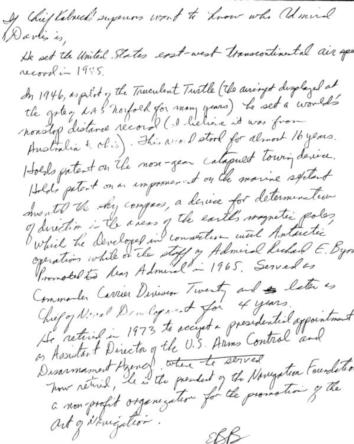 If Chief Kalnecki superiors want to know who Admiral
Davis is,
He set the United States east-west transcontinental air speed
record in 1955.
In 1946, as pilot of the Truculent Turtle (the aircraft displayed at
the gate of NAS Norfolk for many years) he set a world's
nonstop distance record (I believe it was from
Australia to Ohio). This record stood for almost 16 years.
Holds patent on the nose-gear catapult towing device.
Holds patent on an improvement on the marine sextant
Invented the sky compass, a device for determination
of direction in the areas of the earth's magnetic poles,
which he developed in connection with Antarctic
operations while on the staff of Admiral Richard E. Byrd
Promoted to Rear Admiral in 1965. Served as
Commander Carrier Division Twenty and later as
Chief of Naval Development for 4 years.
He retired in 1973 to accept a presidential appointment
as Assistant Director of the U.S. Arms Control and
Disarmament Agency. where he served
Now retired, he is the president of the Navigation Foundation
a non-profit organization for the promotion of the
art of Navigation.